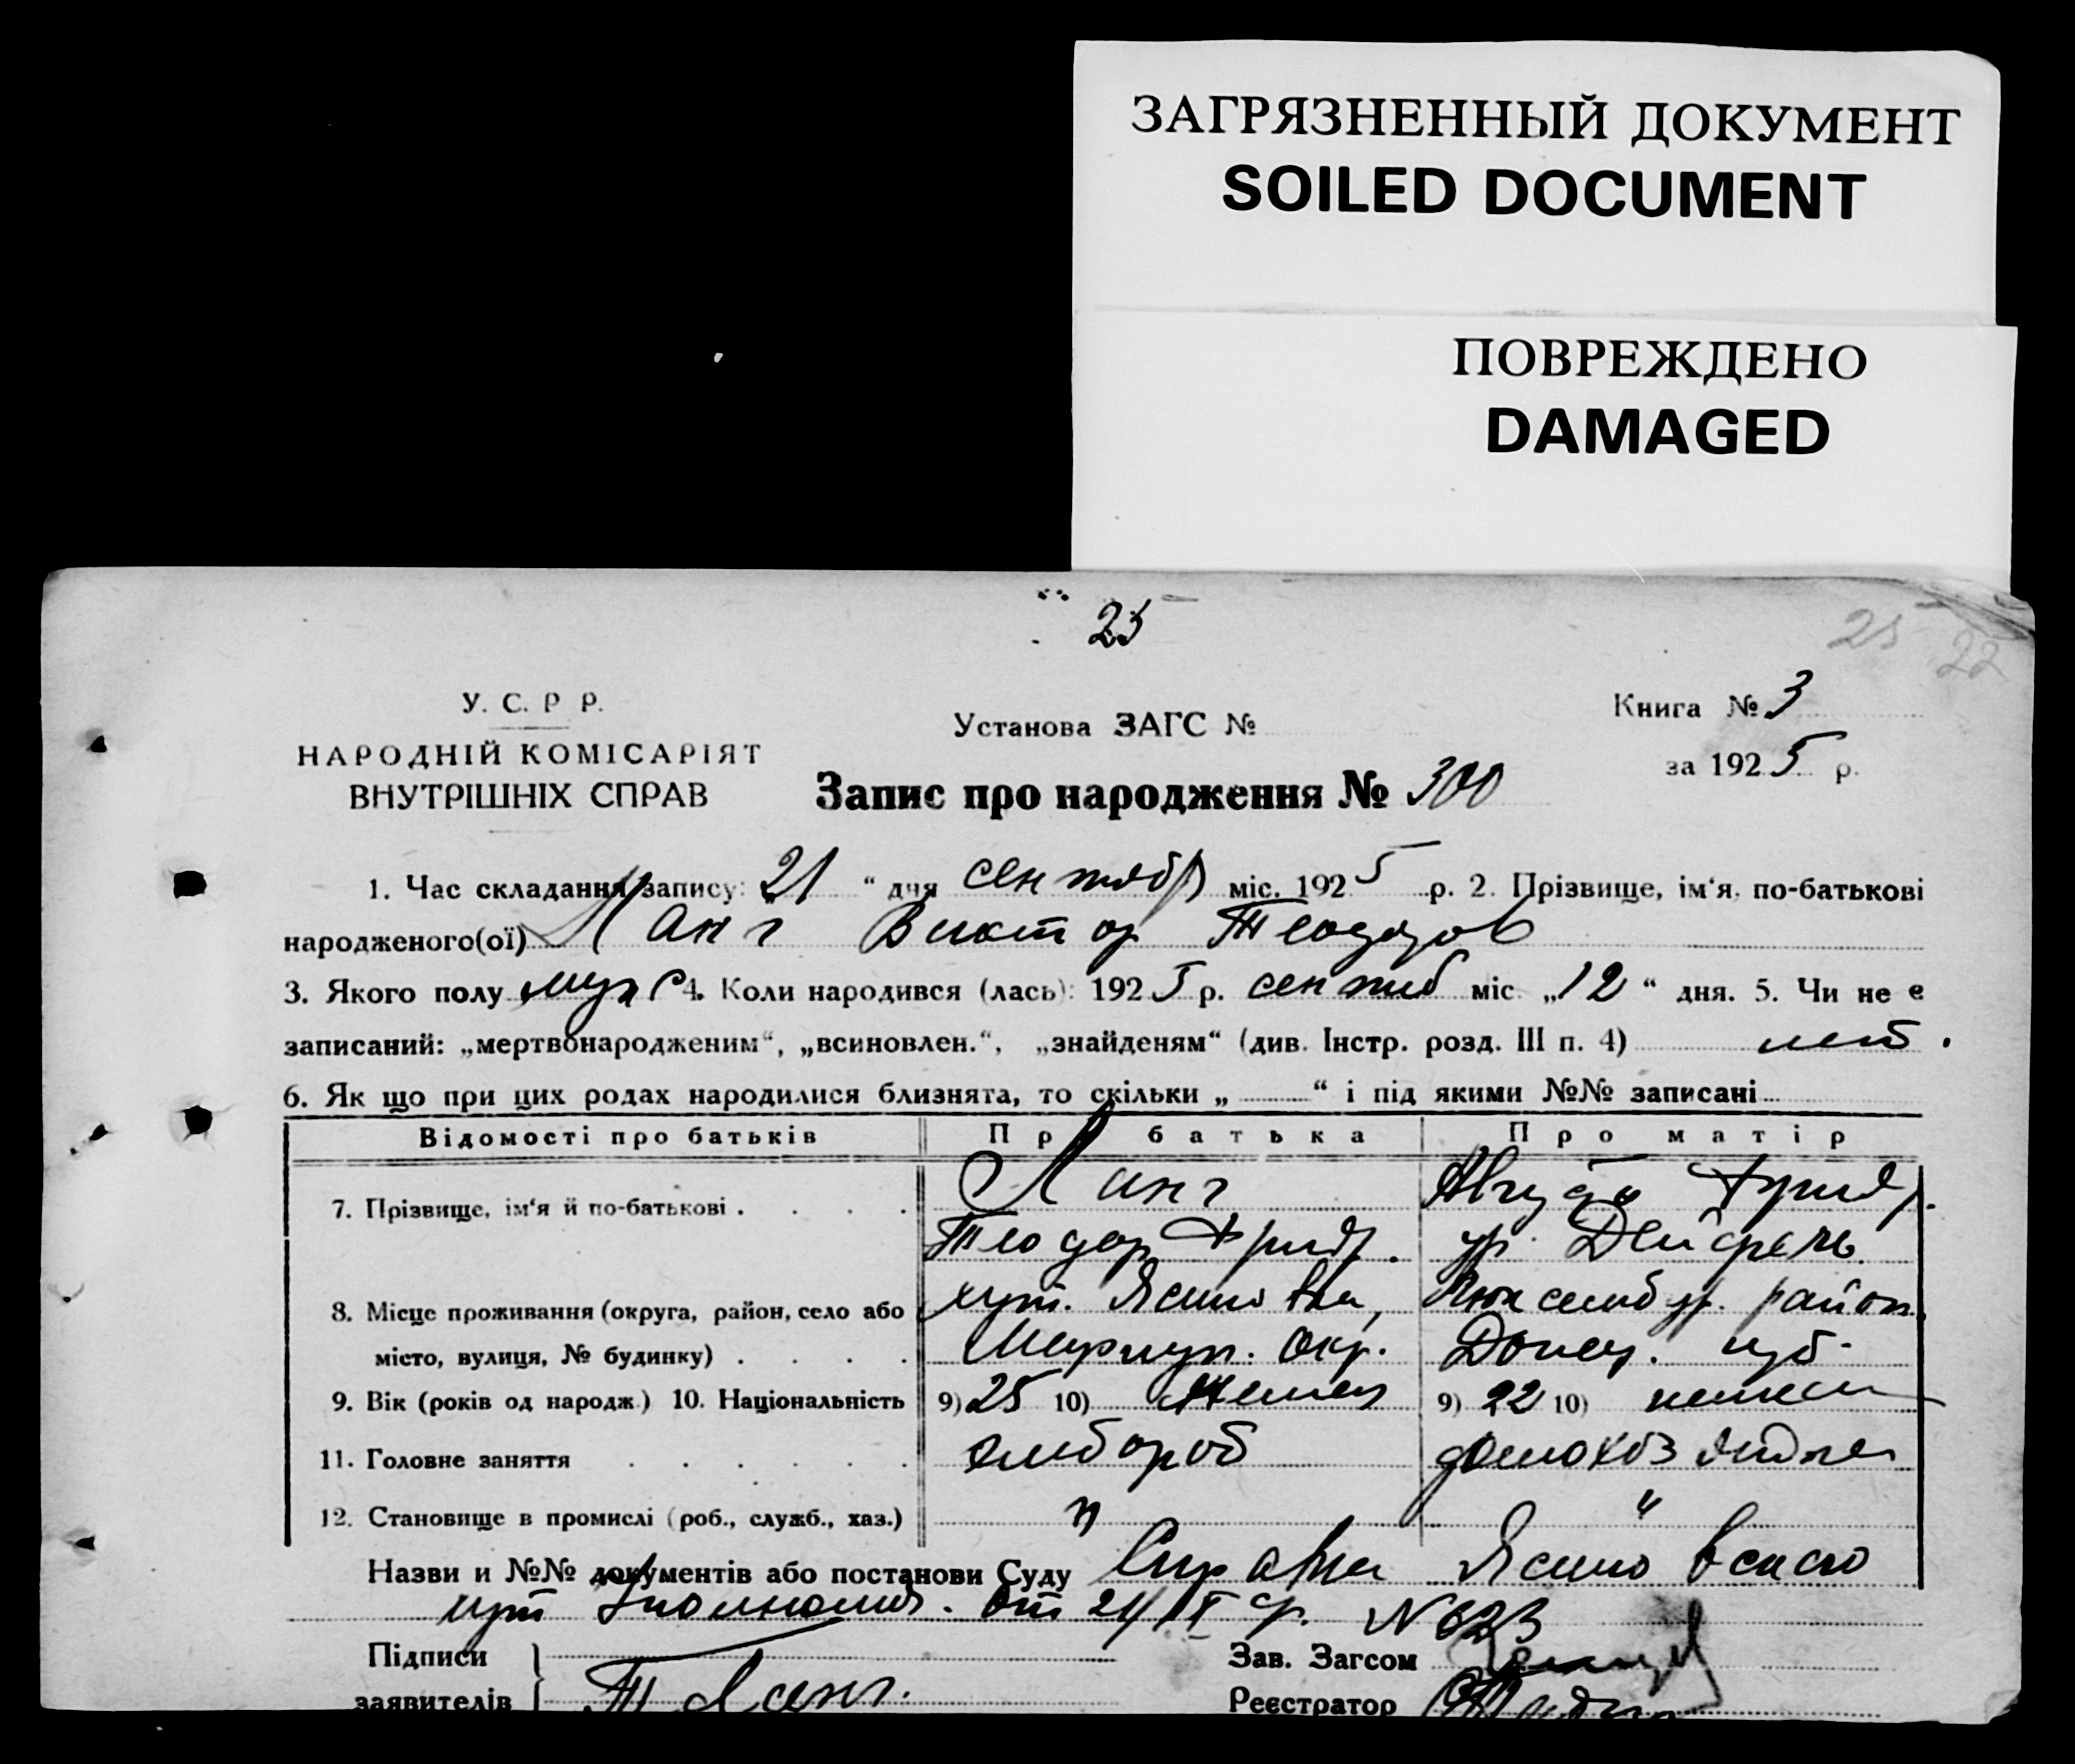 ЗАГРЯЗНЕННЫЙ ДОКУМЕНТ
SOILED DOCUMENT
ПОВРЕЖДЕНО
DAMAGED
25
25 22
У. С. Р. Р.
НАРОДНІЙ КОМІСАРІЯТ
ВНУТРІШНІХ СПРАВ
Установа ЗАГС №
Запис про народження № 300
Книга № 3
за 1925 р.
1. Час складання запису: „21“ дня сентябр міс. 1925 р. 2. Прізвище, ім‘я, по-батькові
народженого(ої) Ланг Виктор Теодоров
3. Якого полу муж 4. Коли народився (лась): 1925 р. сентяб міс. „12“ дня. 5. Чи не є
записаний: „мертвонародженим“, „всиновлен.“, „знайденям“ (див. Інстр. розд. III п. 4) нет.
6. Як що при цих родах народилися близнята, то скільки „ “ і під якими №№ записані
Відомості про батьків Про батька Про матір
7. Прізвище, ім‘я й по-батькові . . . . Ланг Фридр.
Теодор Фридр. ур.
8. Місце проживання (округа, район, село або хут. Ясиновка, Люксембур. район,
місто, вулиця, № будинку) . . . . Мариуп. окр. Донец. губ.
9. Вік (років од народж.) 10. Національність 9) 25 10) Немец 9) 22 10) немка
11. Головне заняття . . . . . . хлебороб домохоз
12. Становище в промислі (роб., служб., хаз.) " "
Назви и №№ документів або постанови Суду Справка Ясиновского
хут от 21/IX № 623
Підписи
заявителів Т Ланг.
Зав. Загсом
Реєстратор